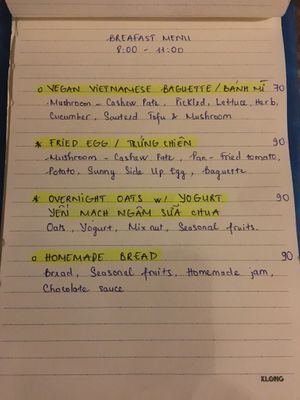 BREAFAST MENU
8:00 - 11:00
o VEGAN VIETNAMESE BAGUETTE / BÁNH MÌ 70
Mushroom - Cashew Pate, Pickled, Lettuce, Herb,
Cucumber, Sauteed Tofu & Mushroom
* FRIED EGG / TRỨNG CHIÊN 90
Mushroom - Cashew Pate, Pan - Fried tomato,
Potato. Sunny Side Up Egg, Baguette
* OVERNIGHT OATS w/ YOGURT 90
YẾN MẠCH NGÂM SỮA CHUA
Oats, Yogurt, Mix nut, Seasonal fruits.
o HOMEMADE BREAD 90
Bread, Seasonal fruits, Homemade jam,
Chocolate sauce
KLONG